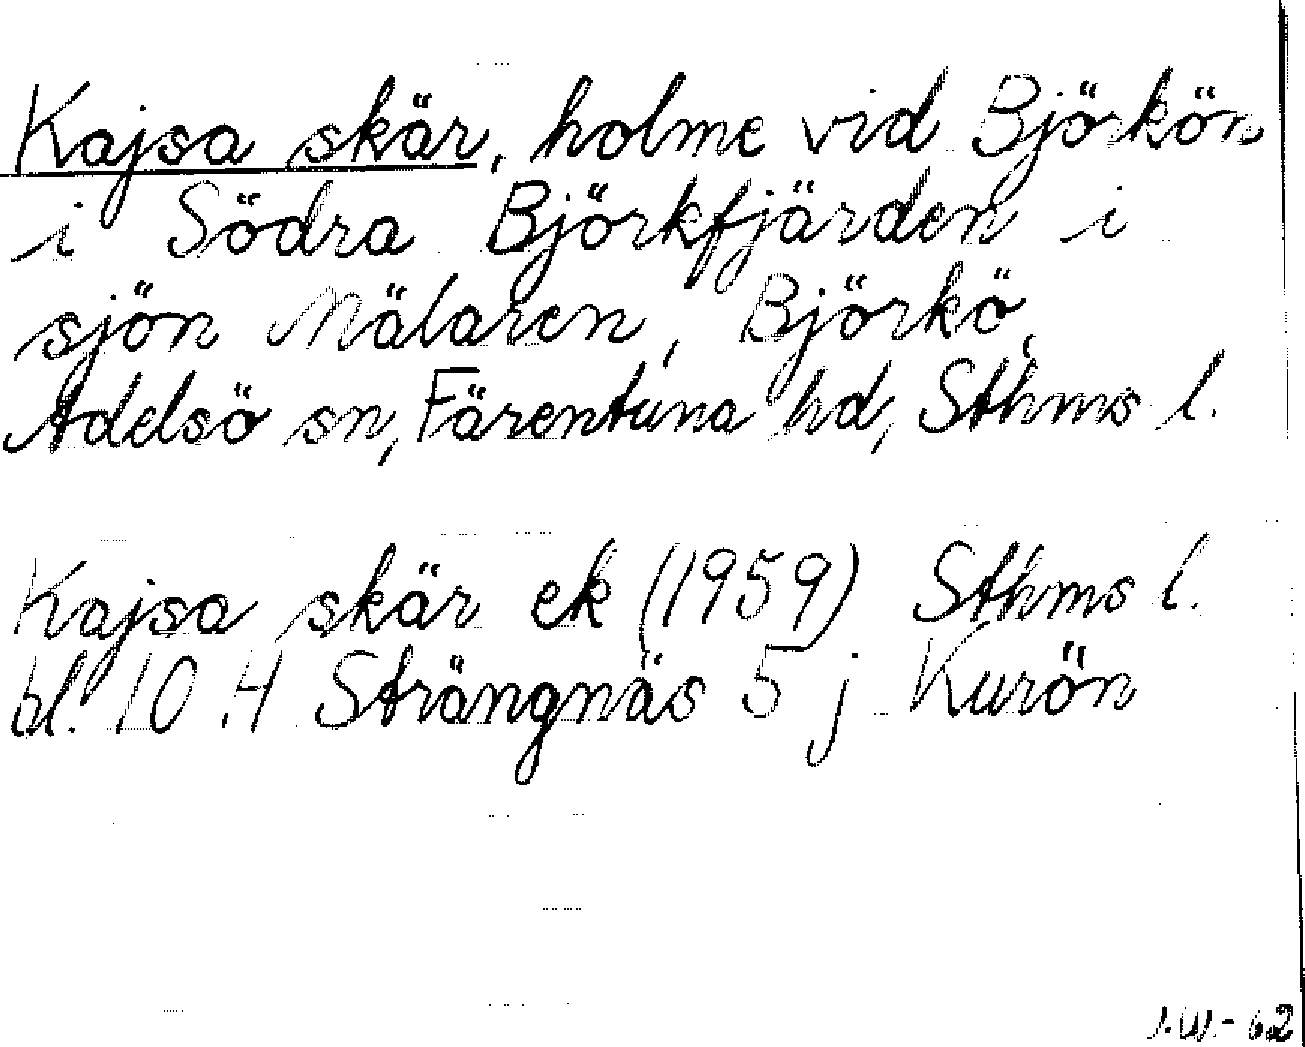 Kajsa skär, holme vid Björkön
i Södra Björkfjärden i
sjön Mälaren, Björkö,
Adelsö sn, Färentuna hd, Sthms l.
Kajsa skär ek (1959) Sthms l.
bl. 10 H Strängnäs 5 j Kurön
I.W.-62